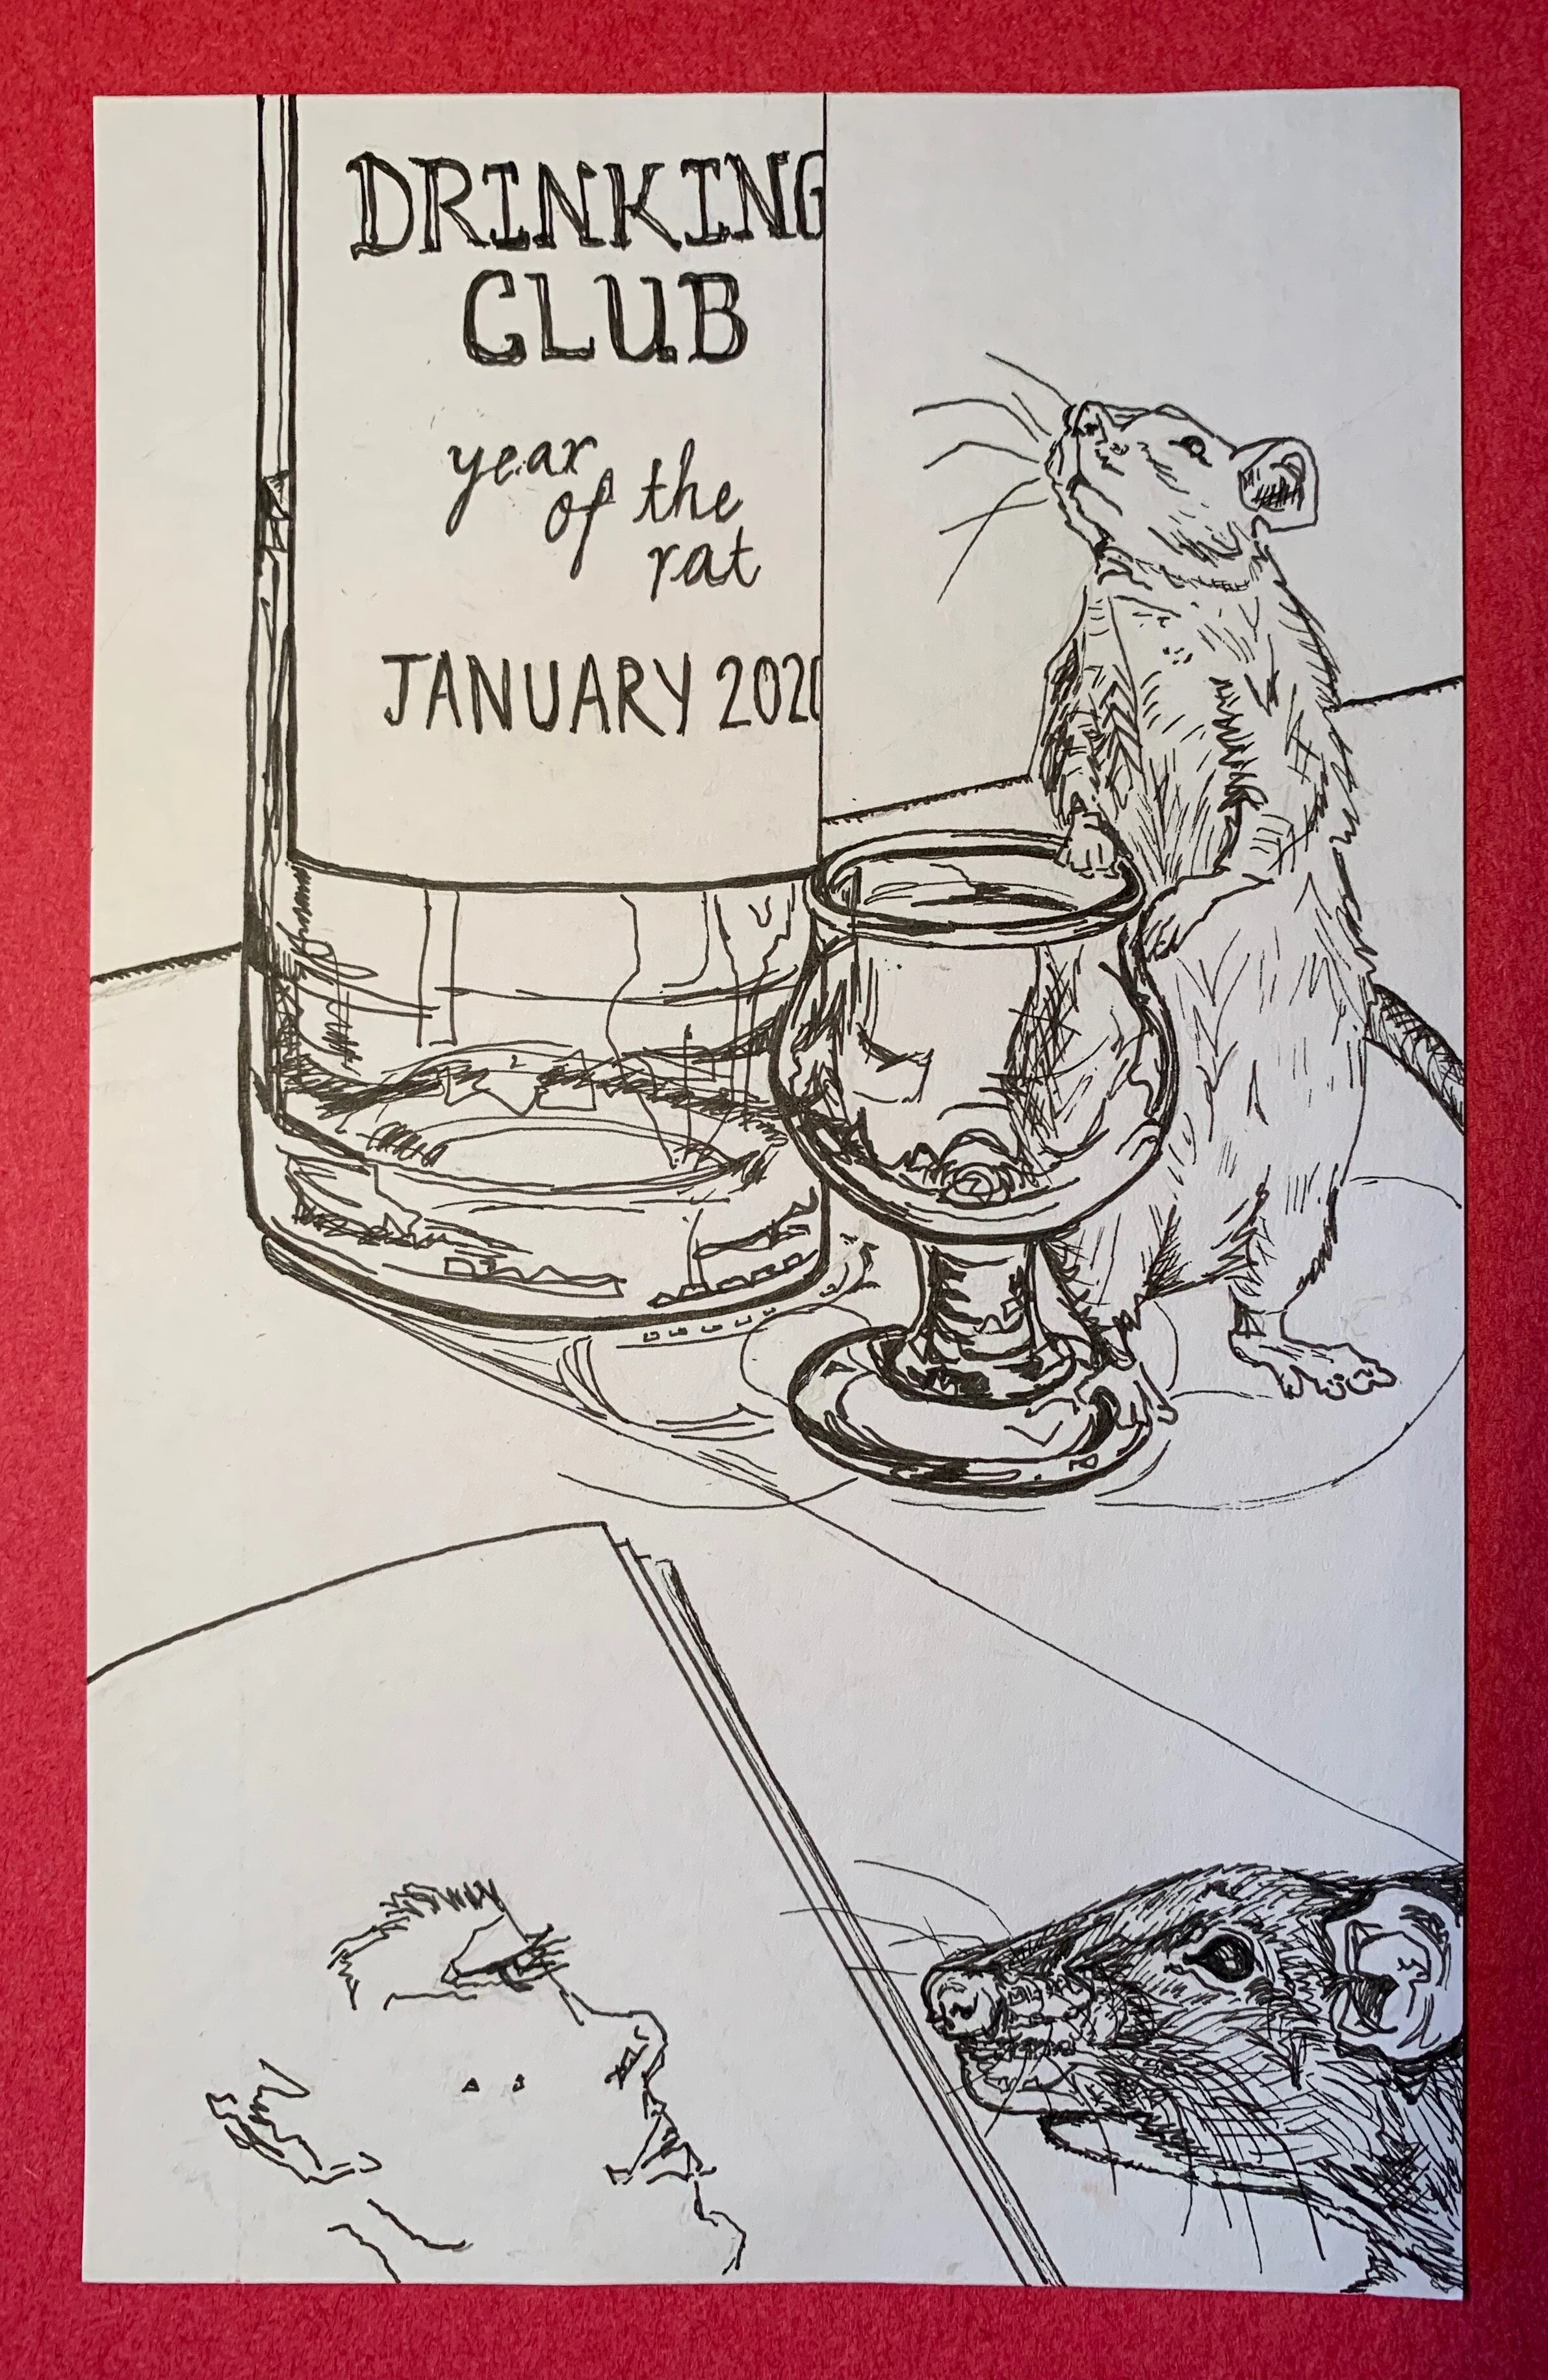 DRINKING
CLUB
year
of the
rat
JANUARY 2020